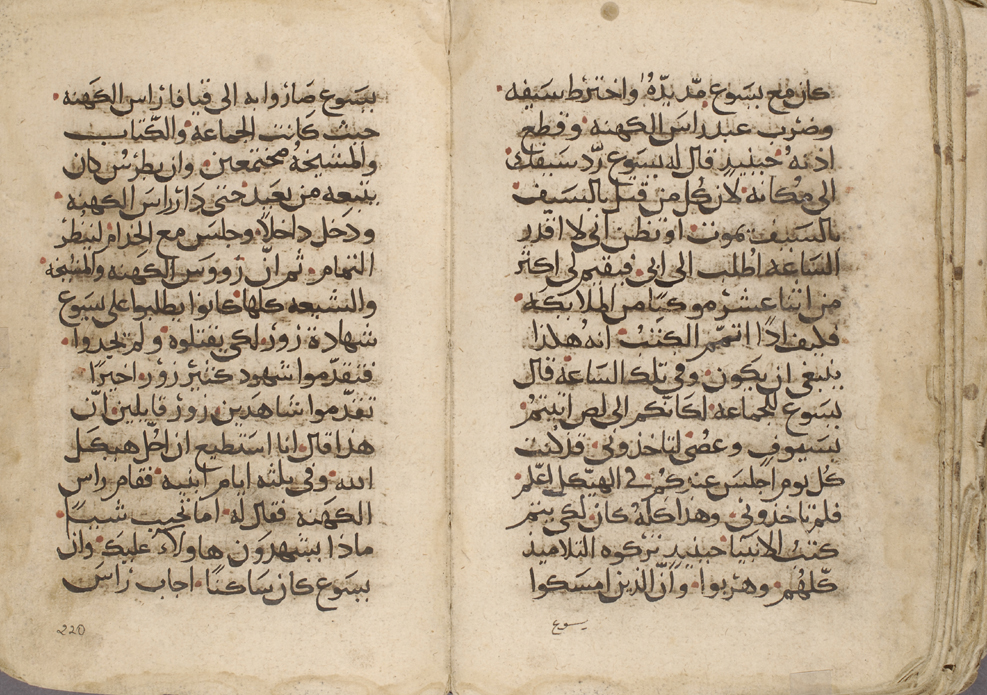 كان مع يسوع مد يده واخترط سيفه
وضرب عبد راس الكهنه وقطع
اذنه حينيذ قال له يسوع رد سيفك
الى مكانه لان كل من قتل بالسيف
بالسيف يموت او تظن انى لا اقدر
الساعه اطلب الى ابى فيقيم لى اكثر
من اثنا عشر موكبا من الملايكه
فكيف اذا تتم الكتب انه هكذا
ينبغى ان يكون وفى تلك الساعه قال
يسوع للجماعه اكانكم الى لص اتيتم
بسيوف وعصى لتاخذونى قد كنت
كل يوم اجلس عندكم فى الهيكل اعلم
فلم تاخذونى وهذا كله كان لكى يتم
كتب الانبيا حينيذ تركوه التلاميذ
كلهم وهربوا وان الذين امسكوا
يسوع
يسوع صاروا به الى قيافا راس الكهنه
حيث كانت الجماعه والكتاب
والمشيخه مجتمعين وان بطرس كان
يتبعه من بعيد حتى دار راس الكهنه
ودخل داخلا وجلس مع الخدام لينظر
التمام ثم ان رووس الكهنه والمشيخه
والشيعه كلها كانوا يطلبوا على يسوع
شهادة زور لكى يقتلوه ولم يجدوا
فتقدموا شهود كثير زور اخيرا
تقدموا شاهدين زور قايلين ان
هدا قال انا استطيع ان احل هيكل
الله وفى ثلثه ايام ابنيه فقام راس
الكهنه فقال له اما تجيب شييا
ماذا يشهدون هاولاء عليك وان
يسوع كان ساكتا اجاب راس
220